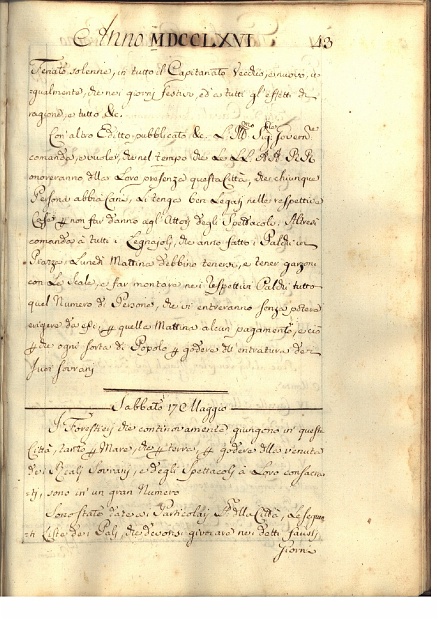 Anno MDCCLXVI 43
solenne, in tutto il Capitanato Vecchio, e nuovo,
egualmente, che nei giorni festivi, ed a tutti gl'effetti di
ragione, e tutto &c.
Con altro Editto pubblicato &c. Govern
comanda, e vuole, che nel tempo che Le LL. AA. RR.
onoreranno della Loro presenza questa Città, che chiunque
Persona abbia Cani, Li tenga ben Legati nelle respettive
Case non far danno agl'Attori degli Spettacoli. Altresi
comanda à tutti i Legnajoli, che anno fatto i Palchi in
Piazza Lunedi Mattina debbino tenervi, e tener garzoni
con Le Scale, e far montare nei respettivi Palchi tutto
quel Numero di Persone, che vi entreranno senza potere
esigere da quella Mattina alcun pagamento, e ciò
che ogni sorta di Popolo godere dell' entratura dei
suoi sovrani
Sabbato 17 Maggio
I Forestieri che continovamente giungono in questa
Città, tanto Mare, che terra, godere della venuta
dei Reali Sovrani, e degli Spettacoli à Loro consacra
ti, sono in un gran Numero
Sono state date da Particolari della Città, Le seguen
ti Liste dei Palj, che devonsi giocare nei detti fausti
Giorni